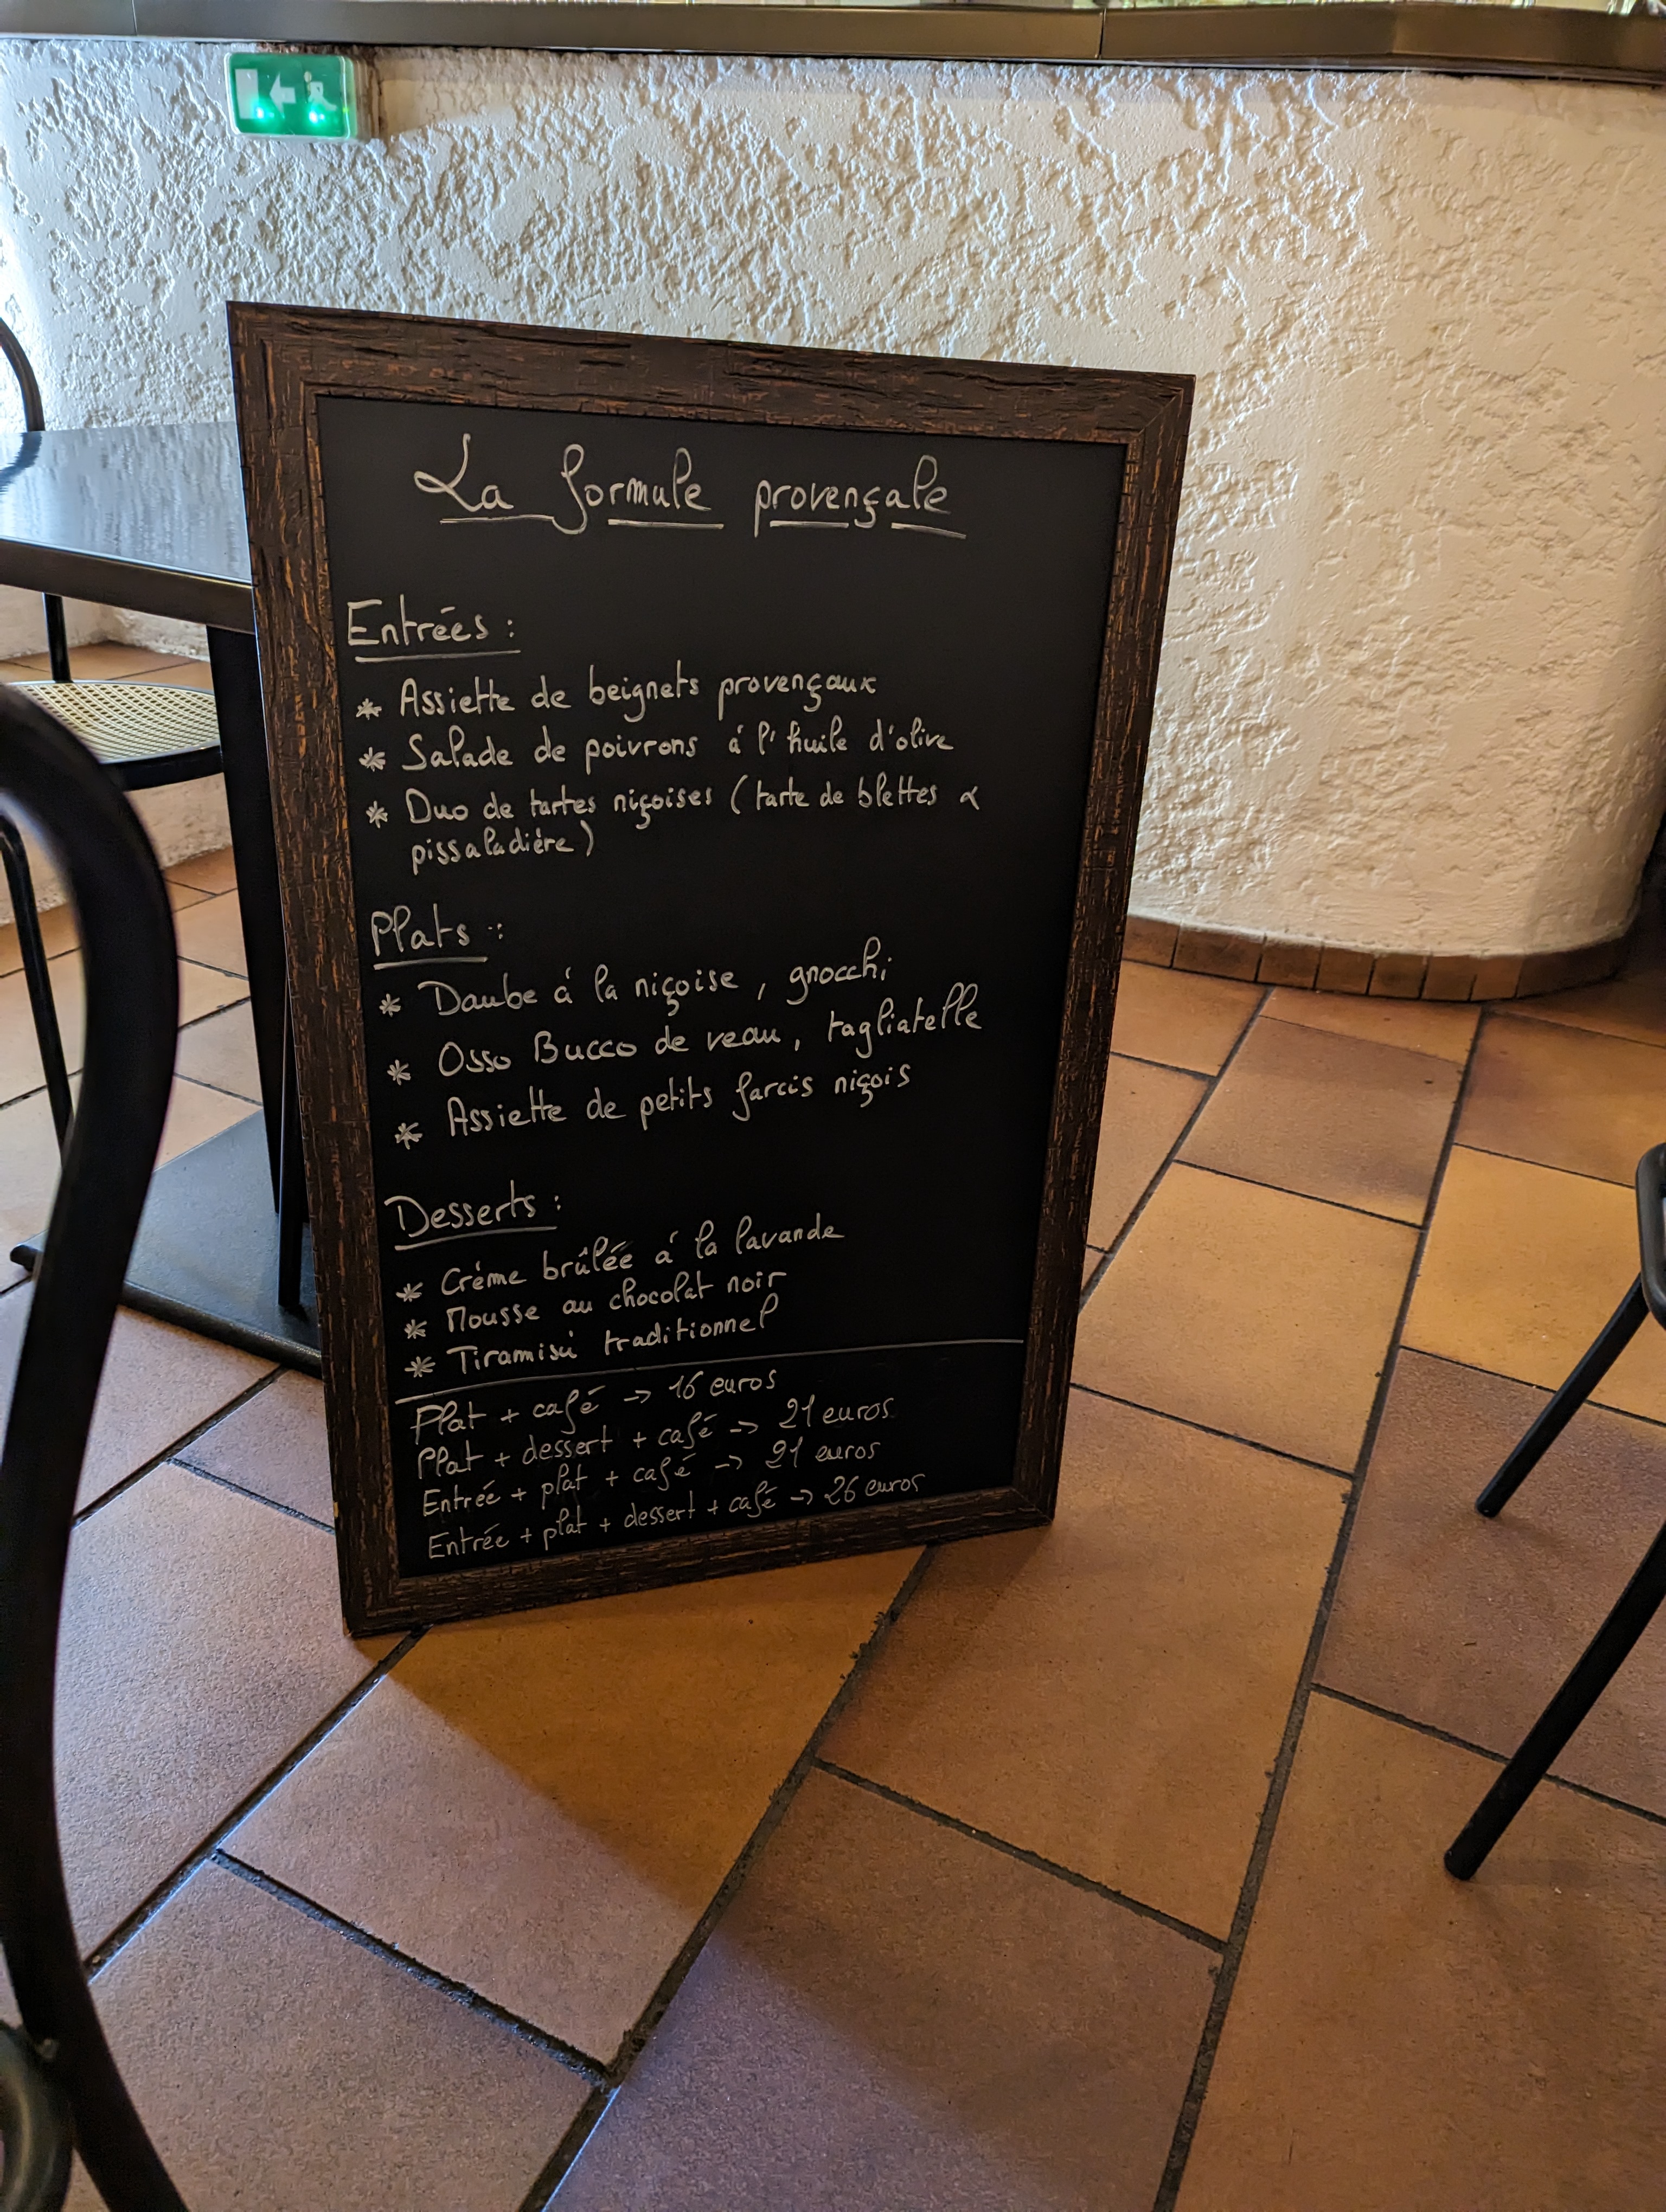 La formule provençale
Entrées :
* Assiette de beignets provençaux
* Salade de poivrons á l'huile d'olive
* Duo de tartes niçoises (tarte de blettes &
pissaladiére)
Plats :
* Daube á la niçoise, gnocchi
* Osso Bucco de veau, tagliatelle
* Assiette de petits farcis niçois
Desserts :
* Créme brûlée á la lavande
* Mousse au chocolat noir
* Tiramisú traditionnel
Plat + café -> 16 euros
Plat + dessert + café -> 21 euros
Entrée + plat + café -> 21 euros
Entrée + plat + dessert + café -> 26 euros